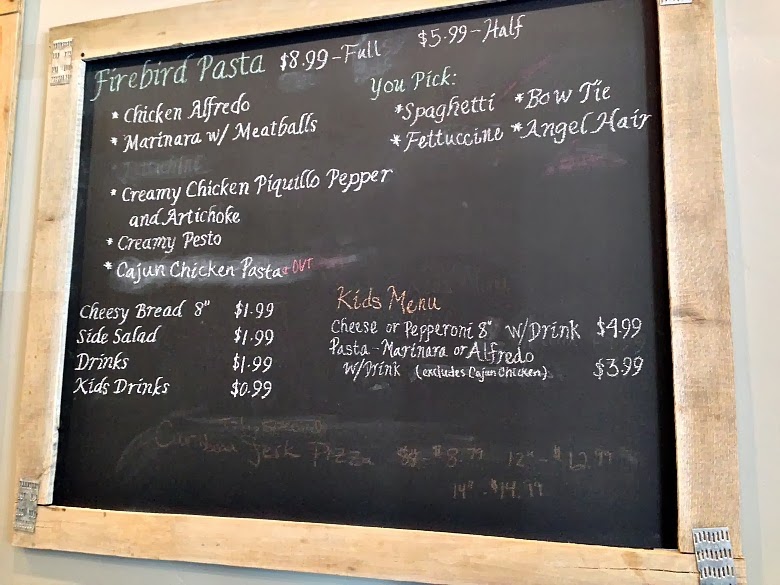 Firebird Pasta $8.99-Full $5.99-Half
* Chicken Alfredo
* Marinara w/ Meatballs
* Creamy Chicken Piquillo Pepper
and Artichoke
* Creamy Pesto
* Cajun Chicken Pasta * OUT
You Pick:
*Spaghetti *Bow Tie
*Fettuccine *Angel Hair
Cheesy Bread 8" $1.99
Side Salad $1.99
Drinks $1.99
Kids Drinks $0.99
Kids Menu
Cheese or Pepperoni 8" w/Drink $4.99
Pasta-Marinara or Alfredo
w/Drink (excludes Cajun Chicken) $3.99
Jerk Pizza 12"-$12.99
14"-$14.99